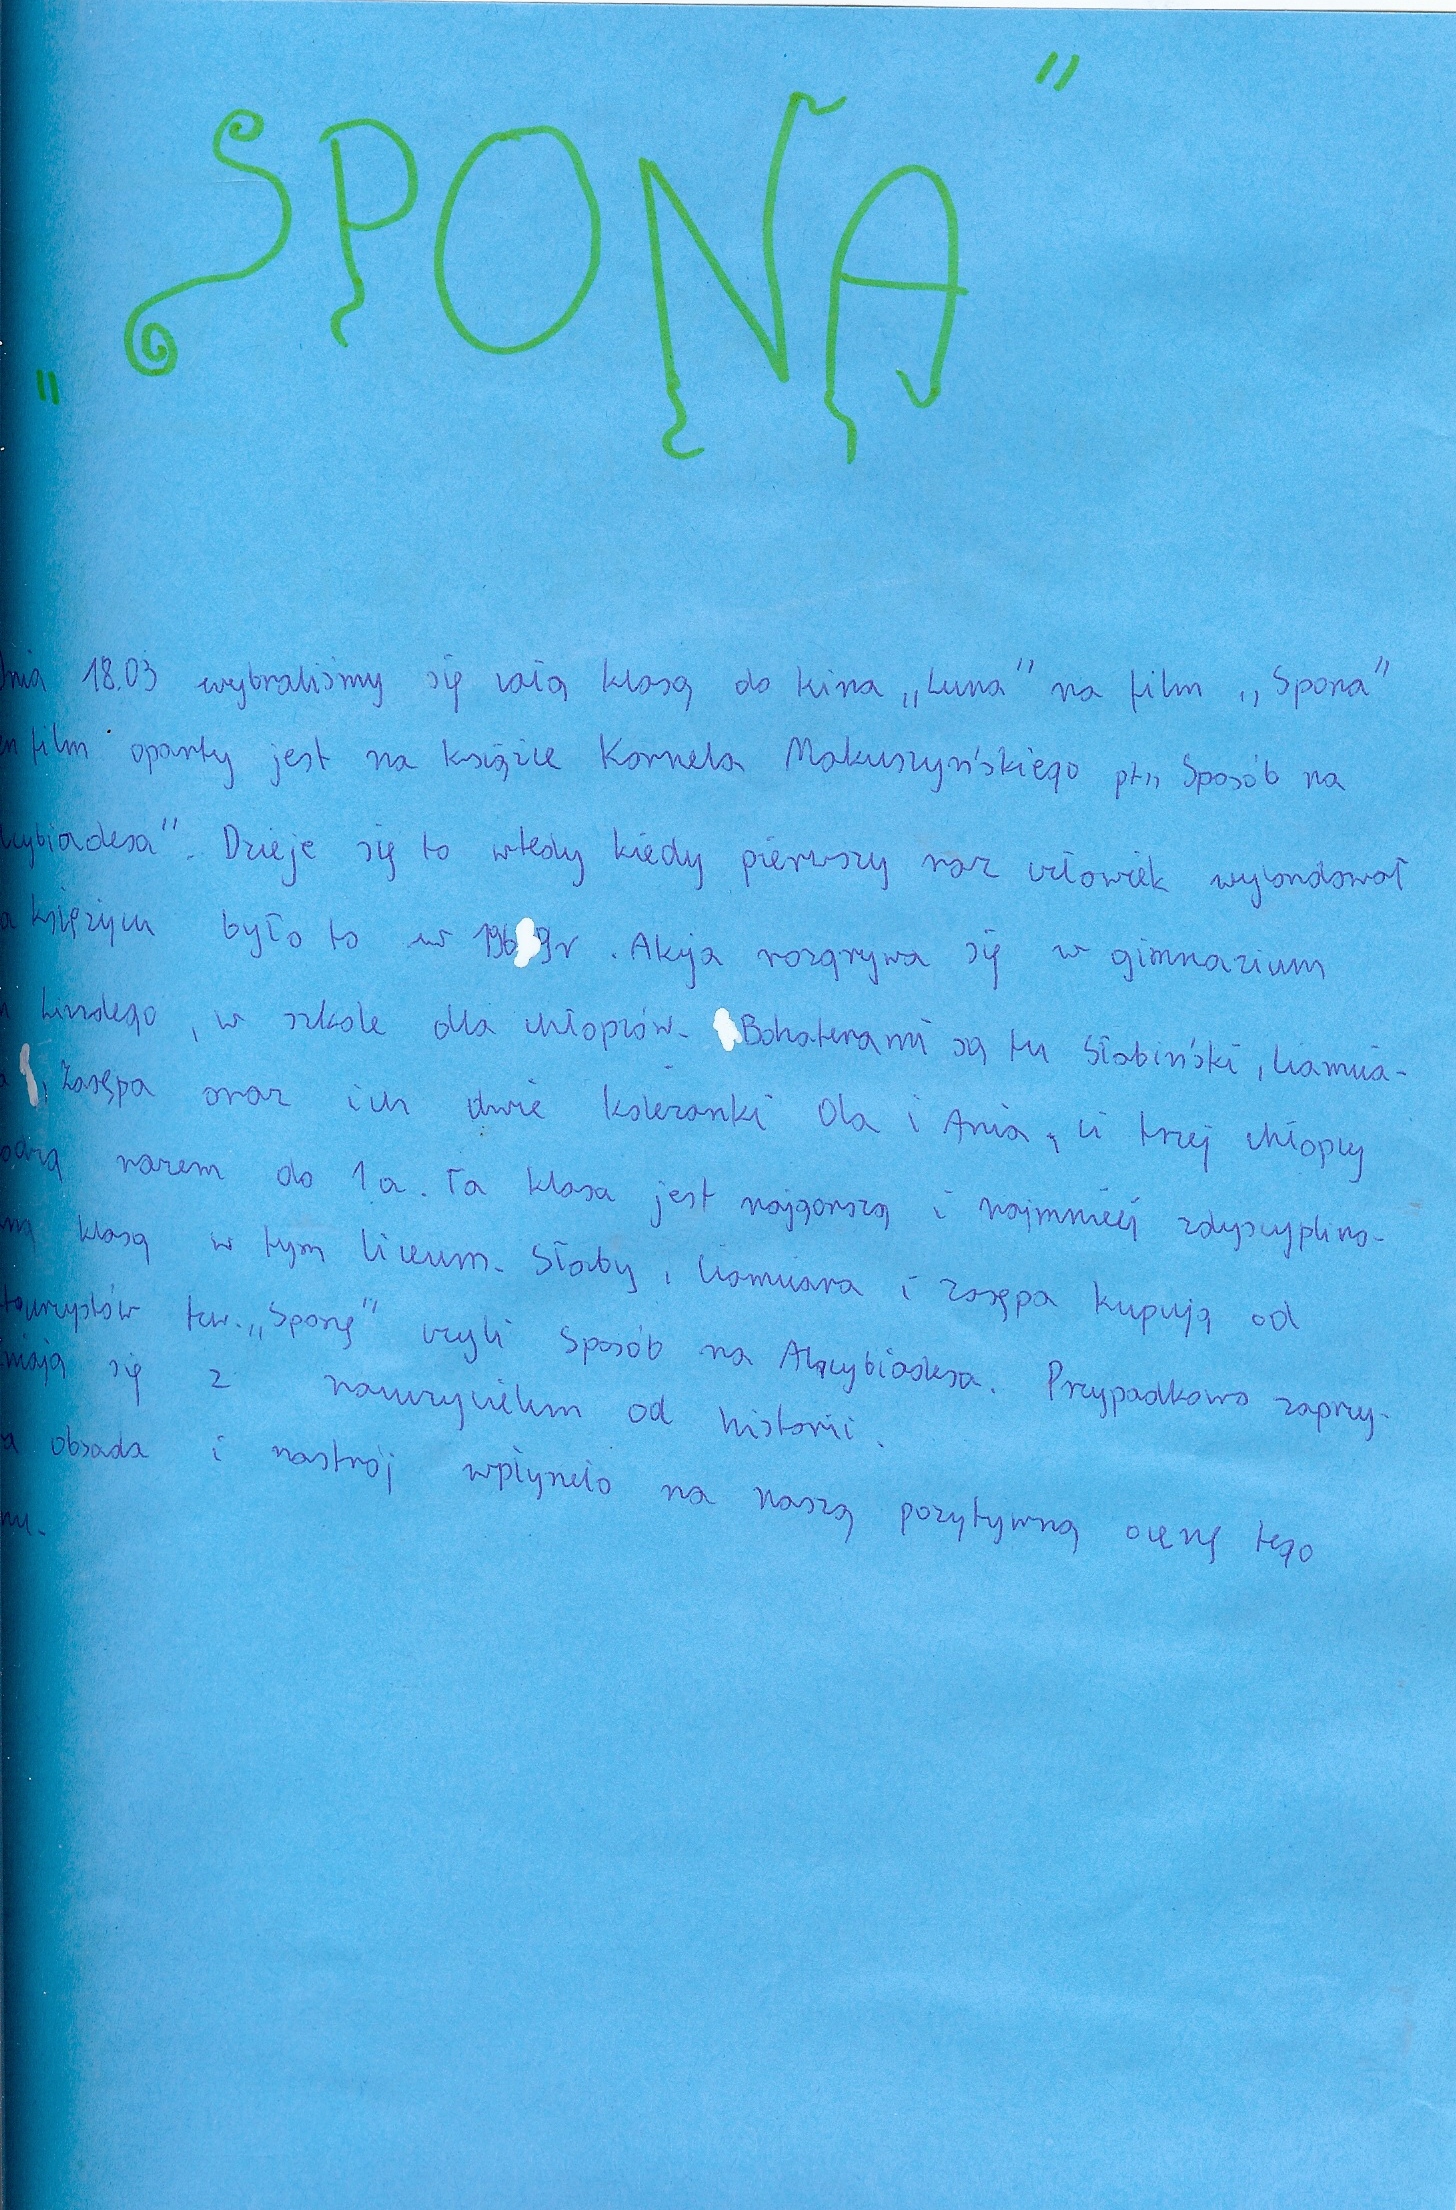 "SPONA"
dnia 18.03 wybraliśmy się całą klasą do kina „Luna” na film „Spona”
en film oparty jest na książce Kornela Makuszyńskiego pt„ Sposób na
lcybiadesa”. Dzieje się to wtedy kiedy pierwszy raz człowiek wylondował
a księżycu było to w 1969r. Akcja rozgrywa się w gimnazium
Lindego, w szkole dla chłopców. Bohaterami są tu Słabiński, Ciamcia-
a, Zasępa oraz ich dwie koleżanki Ola i Ania, ci trzej chłopcy
odzą razem do 1a. Ta klasa jest najgorszą i najmniej zdyscyplino-
ną klasą w tym liceum. Słaby, Ciamciara i Zasępa kupują od
turzystów tzw. „Sponę” czyli Sposób na Alcybiadesa. Przypadkowo zaprzy-
niają się z nauczycielem od historii.
a obsada i nastrój wpłyneło na naszą pozytywną ocenę tego
mu.